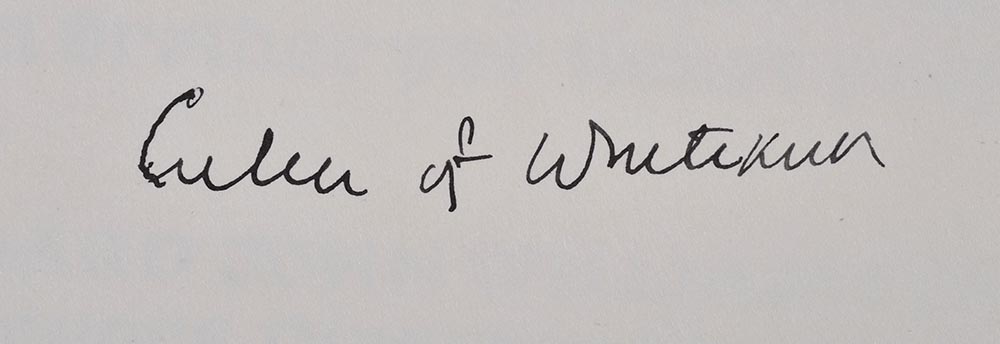 Cullen of Whitekirk